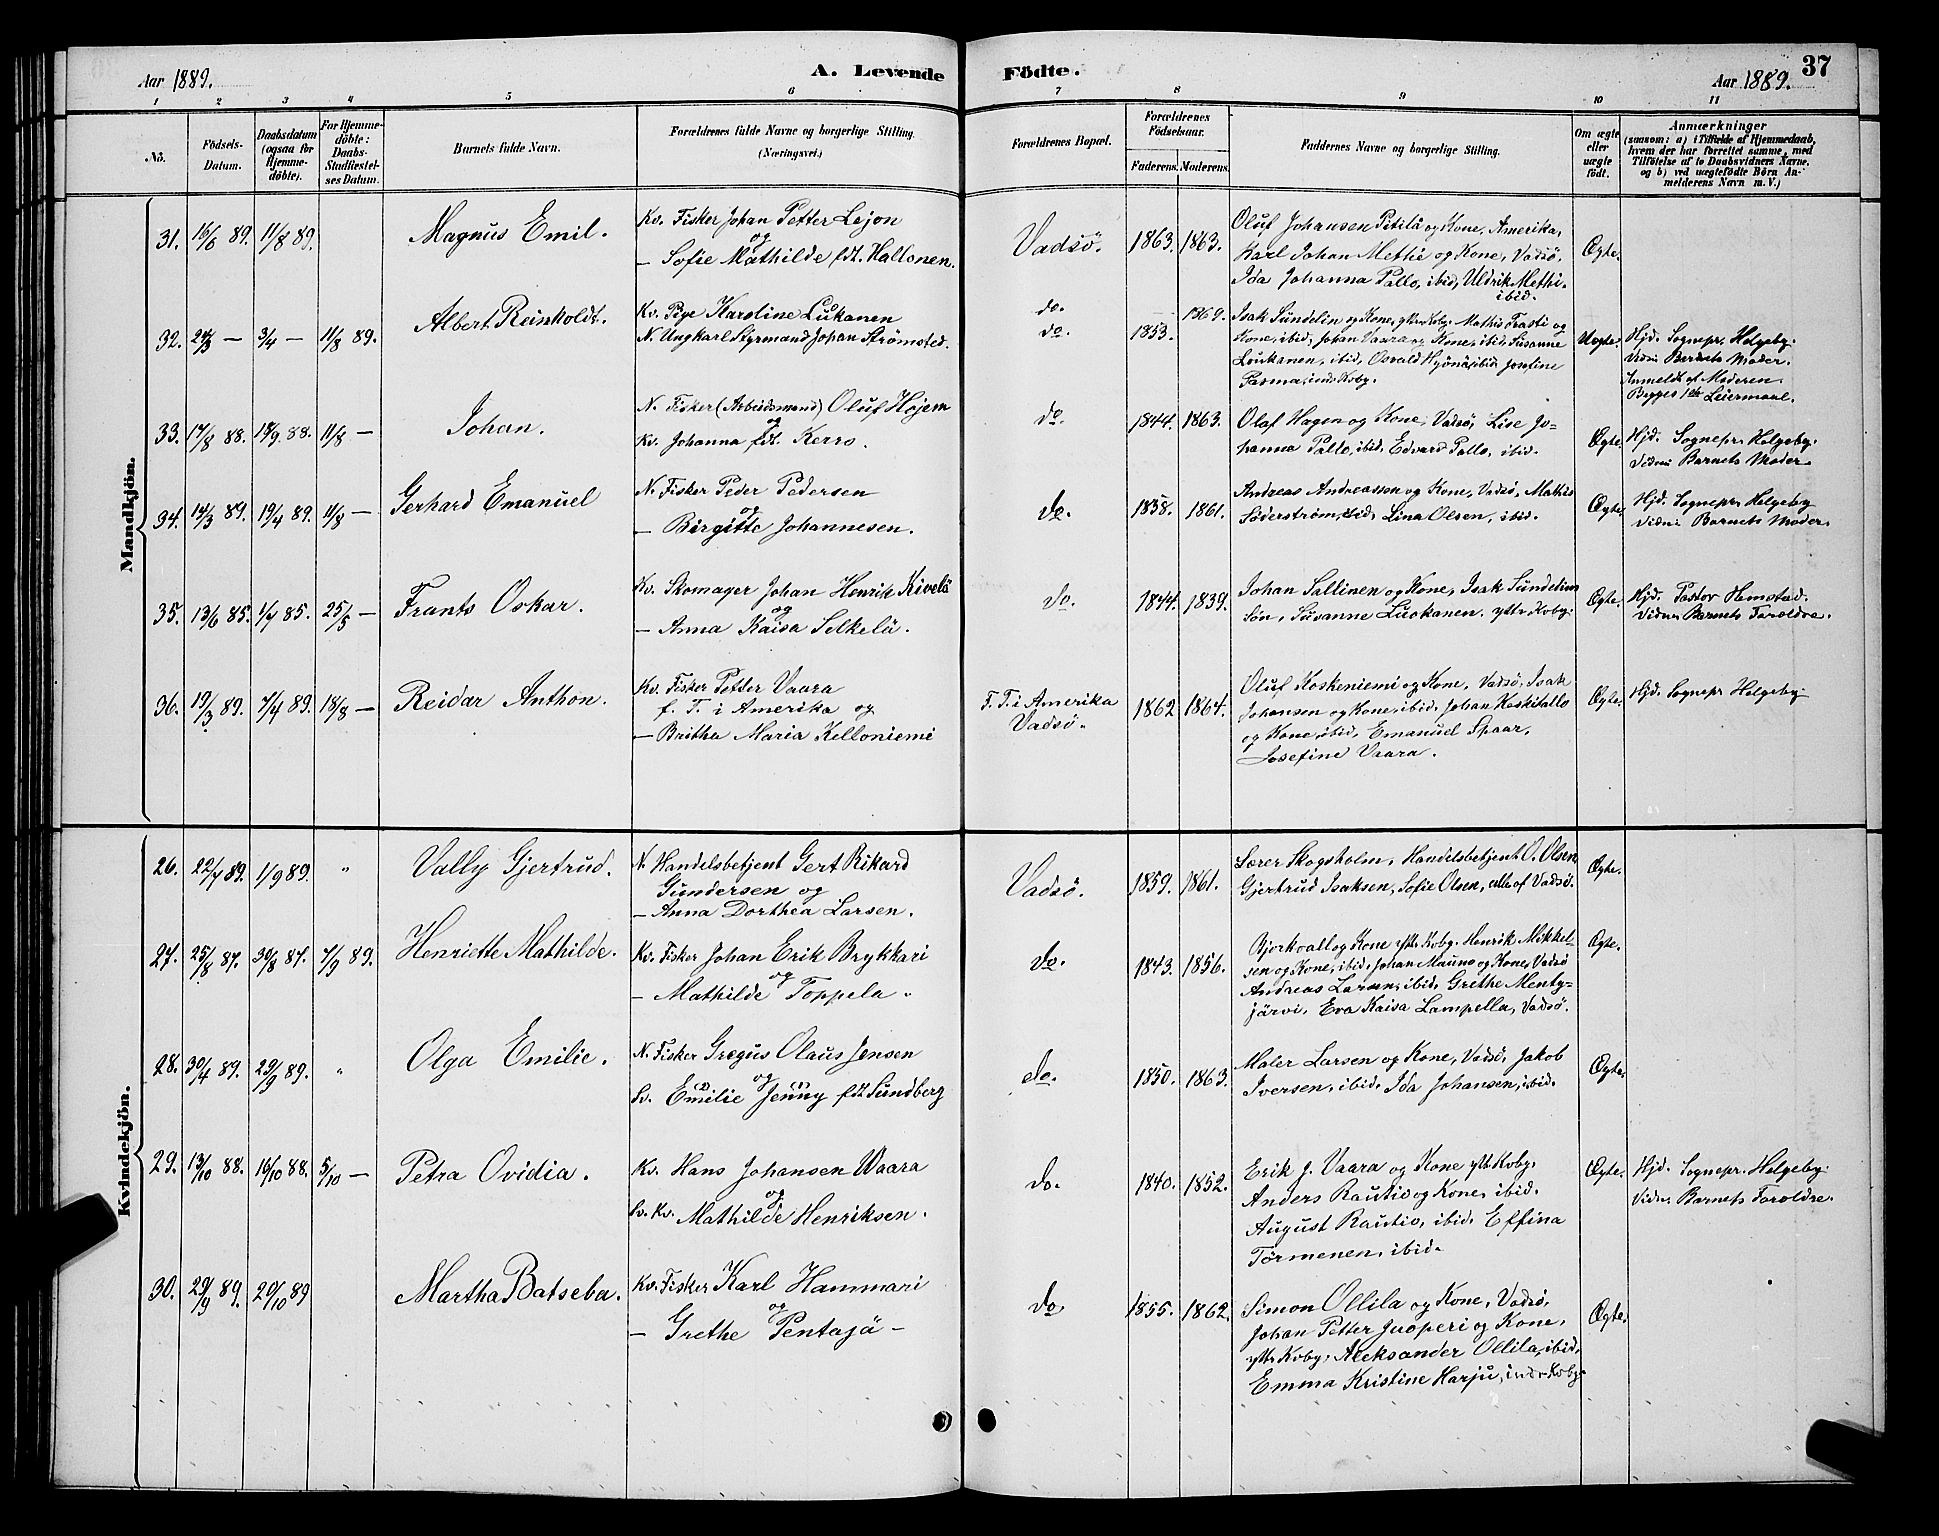 Aar 1889.
A. Levende Födte.
Aar 1889.
37
1 2 3 4 5 6 7 8 9 10 11
No.
Födsels-Datum.
Daabsdatum (ogsaa for Hjemme-döbte).
For Hjemme-döbte: Daabs-Stadfæstel-ses Datum.
Barnets fulde Navn.
Forældrenes fulde Navne og borgerlige Stilling. (Næringsvei.)
Forældrenes Bopæl.
Forældrenes Födselsaar.
Faderens. Moderens.
Faddernes Navne og borgerlige Stilling.
Om ægte eller uægte födt.
Anmærkninger
(saasom: a) i Tilfælde af Hjemmedaab,
hvem der har forrettet samme, med
Tilföielse af to Daabsvidners Navne,
og b) ved uægtefödte Börn An-
melderens Navn m. V.)
Mandkjön.
31. 16/6 89. 11/8 89. Magnus Emil. Kv. Fisker Johan Petter Lejon
og
— Sofie Mathilde fdt. Hallonen.
Vadsö. 1863. 1863.
Oluf Johansen Pitilä og Kone, Amerika,
Karl Johan Methi og Kone, Vadsö,
Ida Johanna Pallo, ibid, Uldrik Methi.
ibid.
Ægte.
32. 24/3 — 3/4 — 11/8 89. Albert Reinholdt. Kv. Pige Karoline Lukanen
N. Ungkarl Styrmand Johan Strömsted.
do.
do. 1853. 1869.
Isak Sundelin og Kone, yttr. Kvby. Mathis Frasti og
Kone, ibid, Johan Vaara og Kone, ibid, Susanne
Loukanen, ibid, Osvald Hyönä, ibid Jostine
Pasma, indr. Kvby.
Uægte.
Hjd. Sognepr. Helgeby.
Vidn: Barnets Moder.
Anmeldt af Moderen.
Begges 1ste Leiermaal.
33. 17/8 88. 18/9 88. 11/8 — Johan. N. Fisker (Arbeidsmand) Oluf Höjem
og
Kv. Johanna fdt. Kerro.
do 1844. 1863.
Olaf Hagen og Kone, Vadsö, Lise Jo-
hanna Pallo, ibid, Edvard Pallo, ibid.
Ægte.
Hjd. Sognepr. Helgeby.
Vidn: Barnets Moder.
34. 14/3 89. 19/4 89. 11/8 — Gerhard Emanuel N. Fisker Peder Pedersen
og
— Birgitte Johannesen.
do. 1838. 1861.
Andreas Andreassen og Kone, Vadsö, Mathis
Söderström, ibid, Lina Olsen, ibid.
Ægte.
Hjd. Sognepr. Helgeby
Vidn: Barnets Moder.
35. 13/6 85. 1/7 85. 25/5 — Frants Oskar. Kv. Skomager Johan Henrik Kivelä
og
— Anna Kaisa Selkelä.
do. 1844. 1839.
Johan Sallinen og Kone, Isak Sundelins
Sön, Susanne Luokanen. yttr. Kvby.
Ægte.
Hjd. Pastor Hemstad.
Vidn: Barnets Forældre.
36. 19/3 89. 7/4 89. 18/8 — Reidar Anthon. Kv. Fisker Petter Vaara
f. T. i Amerika og
— Britha Maria Kelloniemi
F. T. i Amerika
Vadsö. 1862 1864.
Oluf Koskeniemi og Kone, Vadsö, Isak
Johansen og Kone, ibid. Johan Koskitallo
og Kone, ibid, Emanuel Spaar,
Josefine Vaara.
Ægte.
Hjd. Sognepr. Helgeby.
Kvindekjön.
26. 22/7 89. 1/9 89. " Vally Gjertrud. N. Handelsbetjent Gert Rikard
Gundersen og
— Anna Dorthea Larsen.
Vadsö. 1859. 1861.
Lærer Skogsholm, Handelsbetjent O. Olsen
Gjertrud Isaksen, Sofie Olsen, alle af Vadsö.
Ægte.
27. 25/8 87. 30/8 87. 7/9 89. Henriette Mathilde. Kv. Fisker Johan Erik Brykkari
og
— Mathilde Toppela.
do. 1843. 1856.
Bjorkvall og Kone yttr. Kvby. Henrik Mikkel-
sen og Kone, ibid, Johan Mauno og Kone, Vadsö
Andreas Larsen, ibid, Grethe Menty-
järvi, Eva Kaisa Lampella, Vadsö.
Ægte.
28. 30/4 89. 29/9 89. " Olga Emilie. N. Fisker Gregus Olaus Jensen
og
Sv. Emilie Jenny fdt Sundberg
do. 1850. 1863.
Maler Larsen og Kone, Vadsö, Jakob
Iversen, ibid. Ida Johansen, ibid.
Ægte.
29. 13/10 88. 16/10 88. 5/10 — Petra Ovidia. Kv. Hans Johansen Waara
og
Sv. Kv. Mathilde Henriksen.
do. 1840. 1852.
Erik J. Vaara og Kone yttr. Kvby.
Anders Rautio og Kone, ibid.
August Rautio, ibid. Effina
Törmenen, ibid.
Ægte.
Hjd. Sognepr. Helgeby.
Vidn. Barnets Forældre.
30. 29/9 89. 20/10 89 Martha Batseba. Kv. Fisker Karl Hammari
og
— Grethe Pentajä —
do 1855. 1862.
Simon Ollila og Kone, Vadsö,
Johan Petter Juoperi og Kone,
yttr. Kvby, Aleksander Ollila, ibid,
Emma Kristine Harju, indr. Kvby.
Ægte.